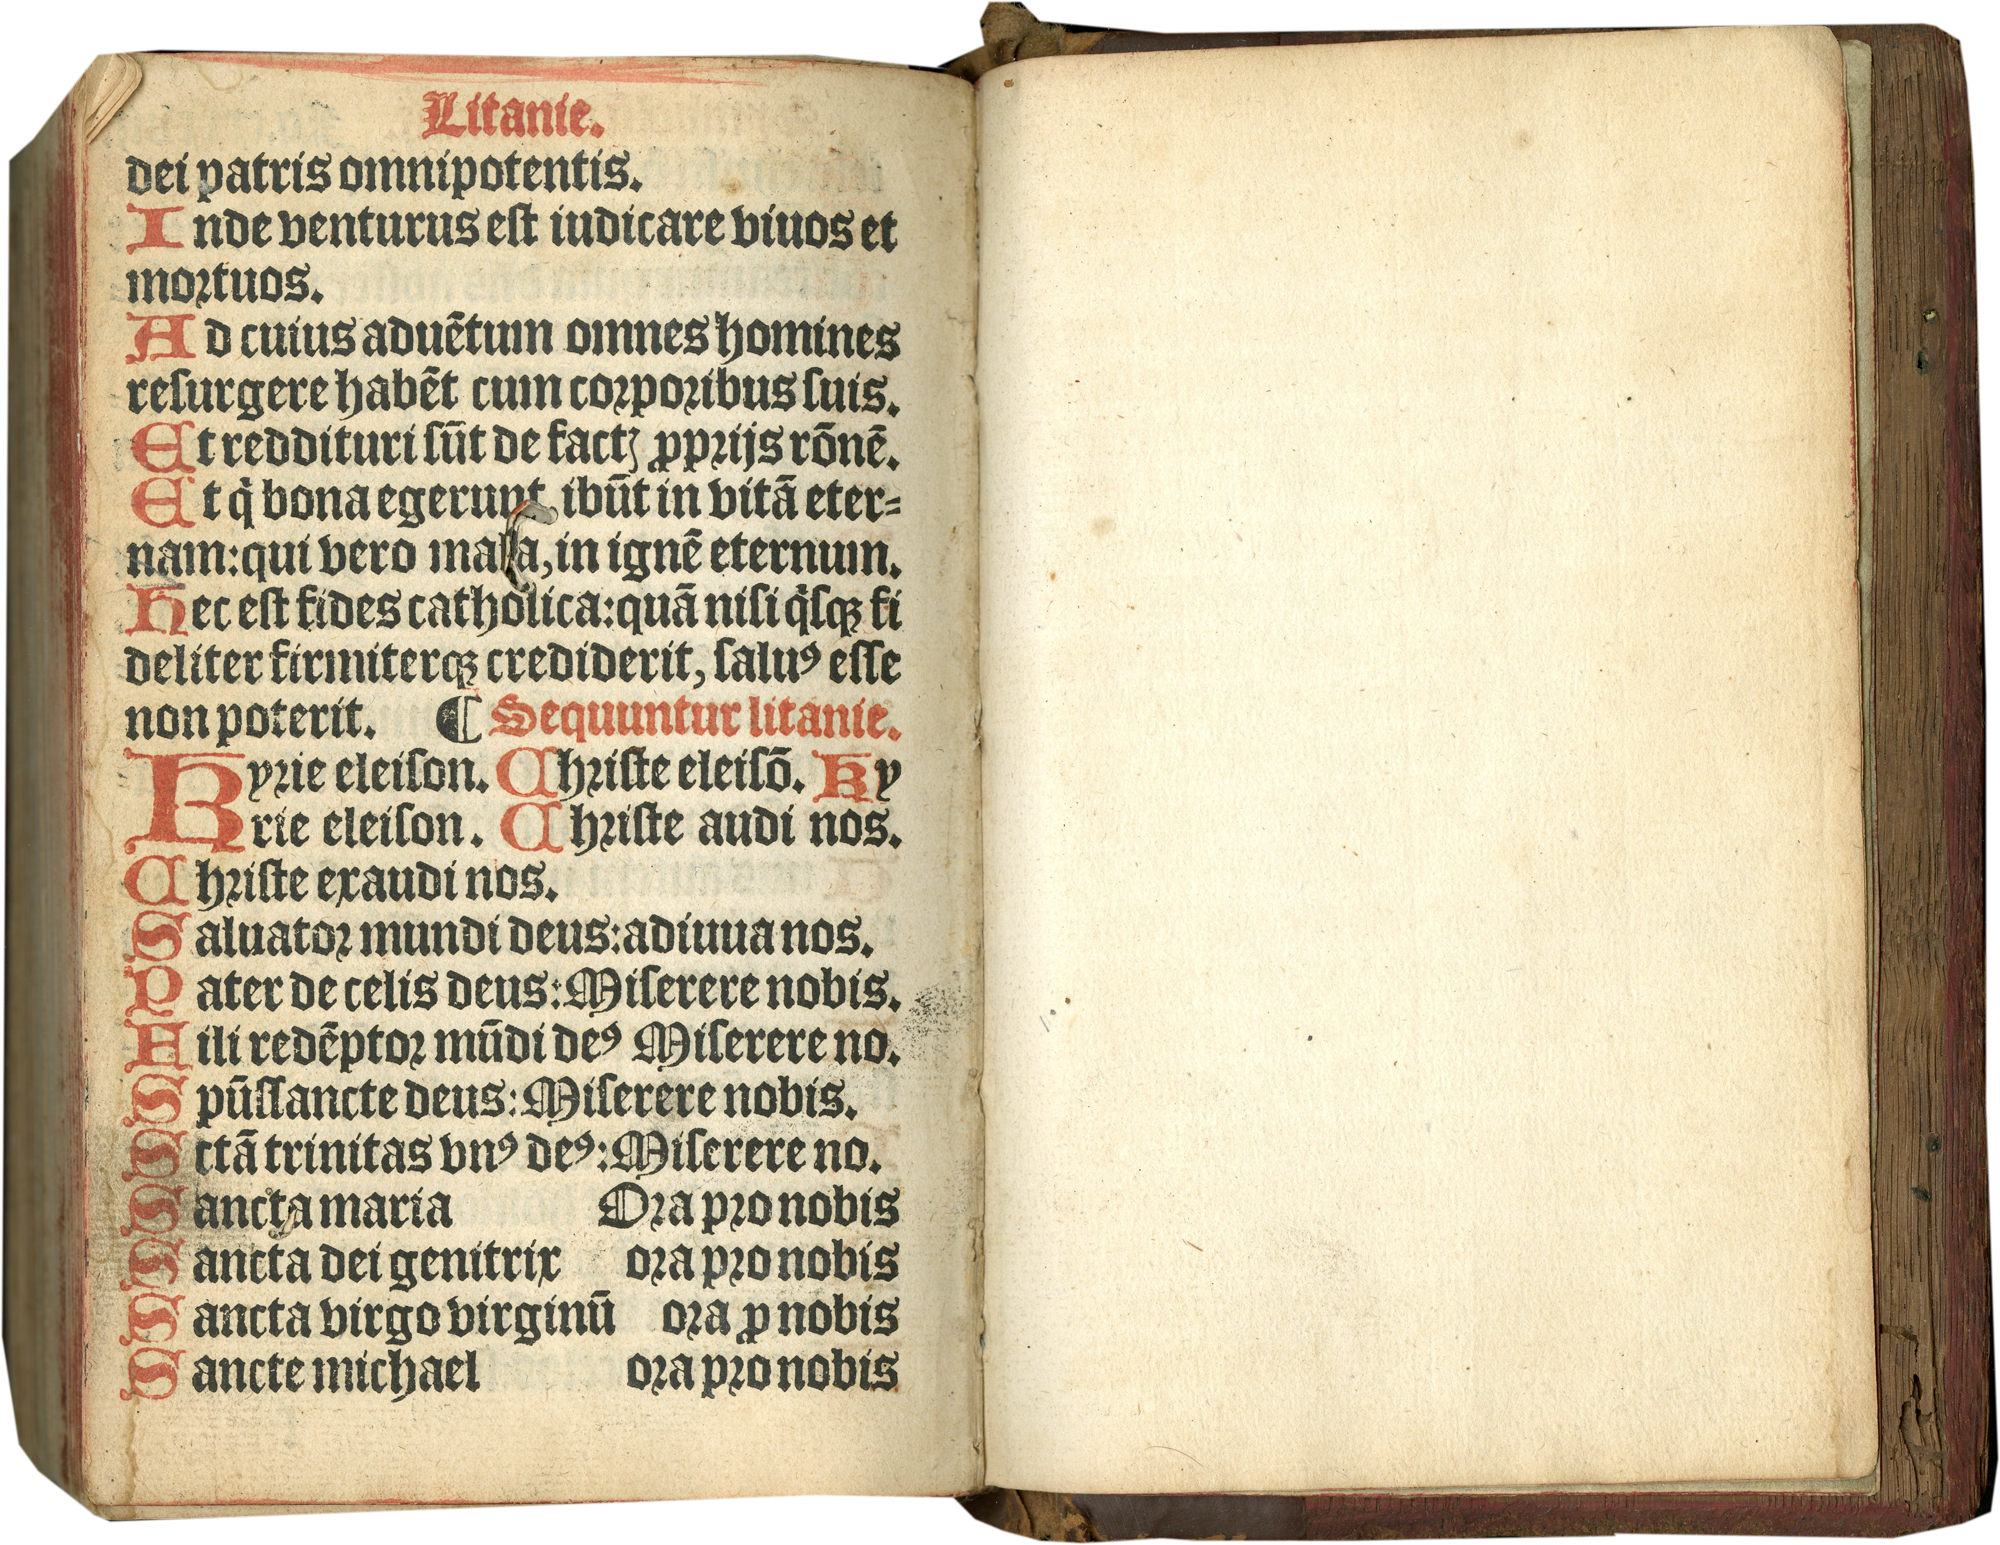 Litanie.
dei patris omnipotentis.
Inde venturus eſt iudicare viuos et
moꝛtuos.
Ad cuius aduētum omnes homines
reſurgere habēt cum coꝛpoꝛibus ſuis.
Et reddituri ſūt de factꝭ ꝓpꝛijs rōnē.
Et q̇ bona egerunt, ibūt in vitā eter⸗
nam: qui vero mala, in ignē eternum.
Hec eſt fides catholica: quā niſi q̇ſqꝫ fi
deliter firmiterqꝫ crediderit, ſaluꝰ eſſe
non poterit. ¶ Sequuntur litanie.
Kyꝛie eleiſon. Chꝛiſte eleiſō. Ky
rie eleiſon. Chꝛiſte audi nos.
Chꝛiſte exaudi nos.
Saluatoꝛ mundi deus: adiuua nos.
Pater de celis deus: Miſerere nobis.
Fili redēptoꝛ mūdi deꝰ Miſerere no.
Spūſſancte deus: Miſerere nobis.
Sctā trinitas vnꝰ deꝰ: Miſerere no.
Sancta maria Oꝛa pꝛo nobis
Sancta dei genitrix oꝛa pꝛo nobis
Sancta virgo virginū oꝛa ꝓ nobis
Sancte michael oꝛa pꝛo nobis